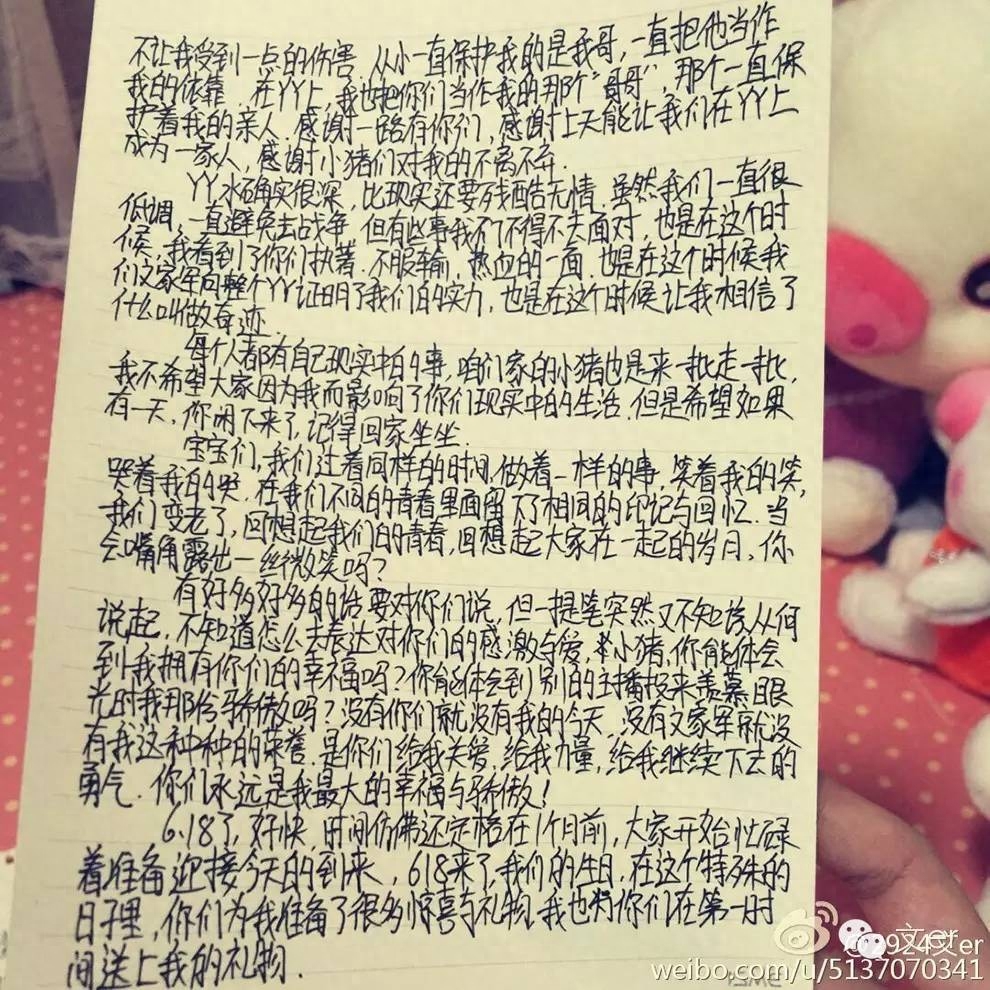 不让我受到一点的伤害.从小一直保护我的是我哥,一直把他当作
我的依靠.在YY上,我也把你们当作我的那个"哥哥",那个一直保
护着我的亲人.感谢一路有你们,感谢上天能让我们在YY上
成为一家人,感谢小猪们对我的不离不弃.
YY水确实很深,比现实还要残酷无情.虽然我们一直很
低调,一直避免去战争,但有些事我们不得不去面对,也是在这个时
候,我看到了你们执著.不服输,热血的一面.也是在这个时候我
们文家军向整个YY证明了我们的实力,也是在这个时候让我相信了
什么叫做奇迹.
每个人都有自己现实中的事,咱们家的小猪也是来一批走一批,
我不希望大家因为我而影响了你们现实中的生活.但是希望如果
有一天,你闲下来了,记得回家坐坐.
宝宝们,我们过着同样的时间,做着一样的事,笑着我的笑,
哭着我的哭.在我们不同的青春里面留下了相同的印记与回忆.当
我们变老了,回想起我们的青春,回想起大家在一起的岁月,你
会嘴角露出一丝微笑吗?
有好多好多的话要对你们说,但一提笔突然又不知该从何
说起,不知道怎么去表达对你们的感激与爱,小猪,你能体会
到我拥有你们的幸福吗?你能体会到别的主播投来羡慕眼
光时我那份骄傲吗?没有你们就没有我的今天,没有文家军就没
有我这种种的荣誉.是你们给我关爱,给我力量,给我继续下去的
勇气.你们永远是我最大的幸福与骄傲!
6.18了,好快,时间仿佛还定格在1个月前,大家开始忙碌
着准备迎接今天的到来,618来了,我们的生日,在这个特殊的
日子里,你们为我准备了很多惊喜与礼物.我也将你们在第一时
间送上我的礼物.
文er
@2924文er
weibo.com/u/5137070341